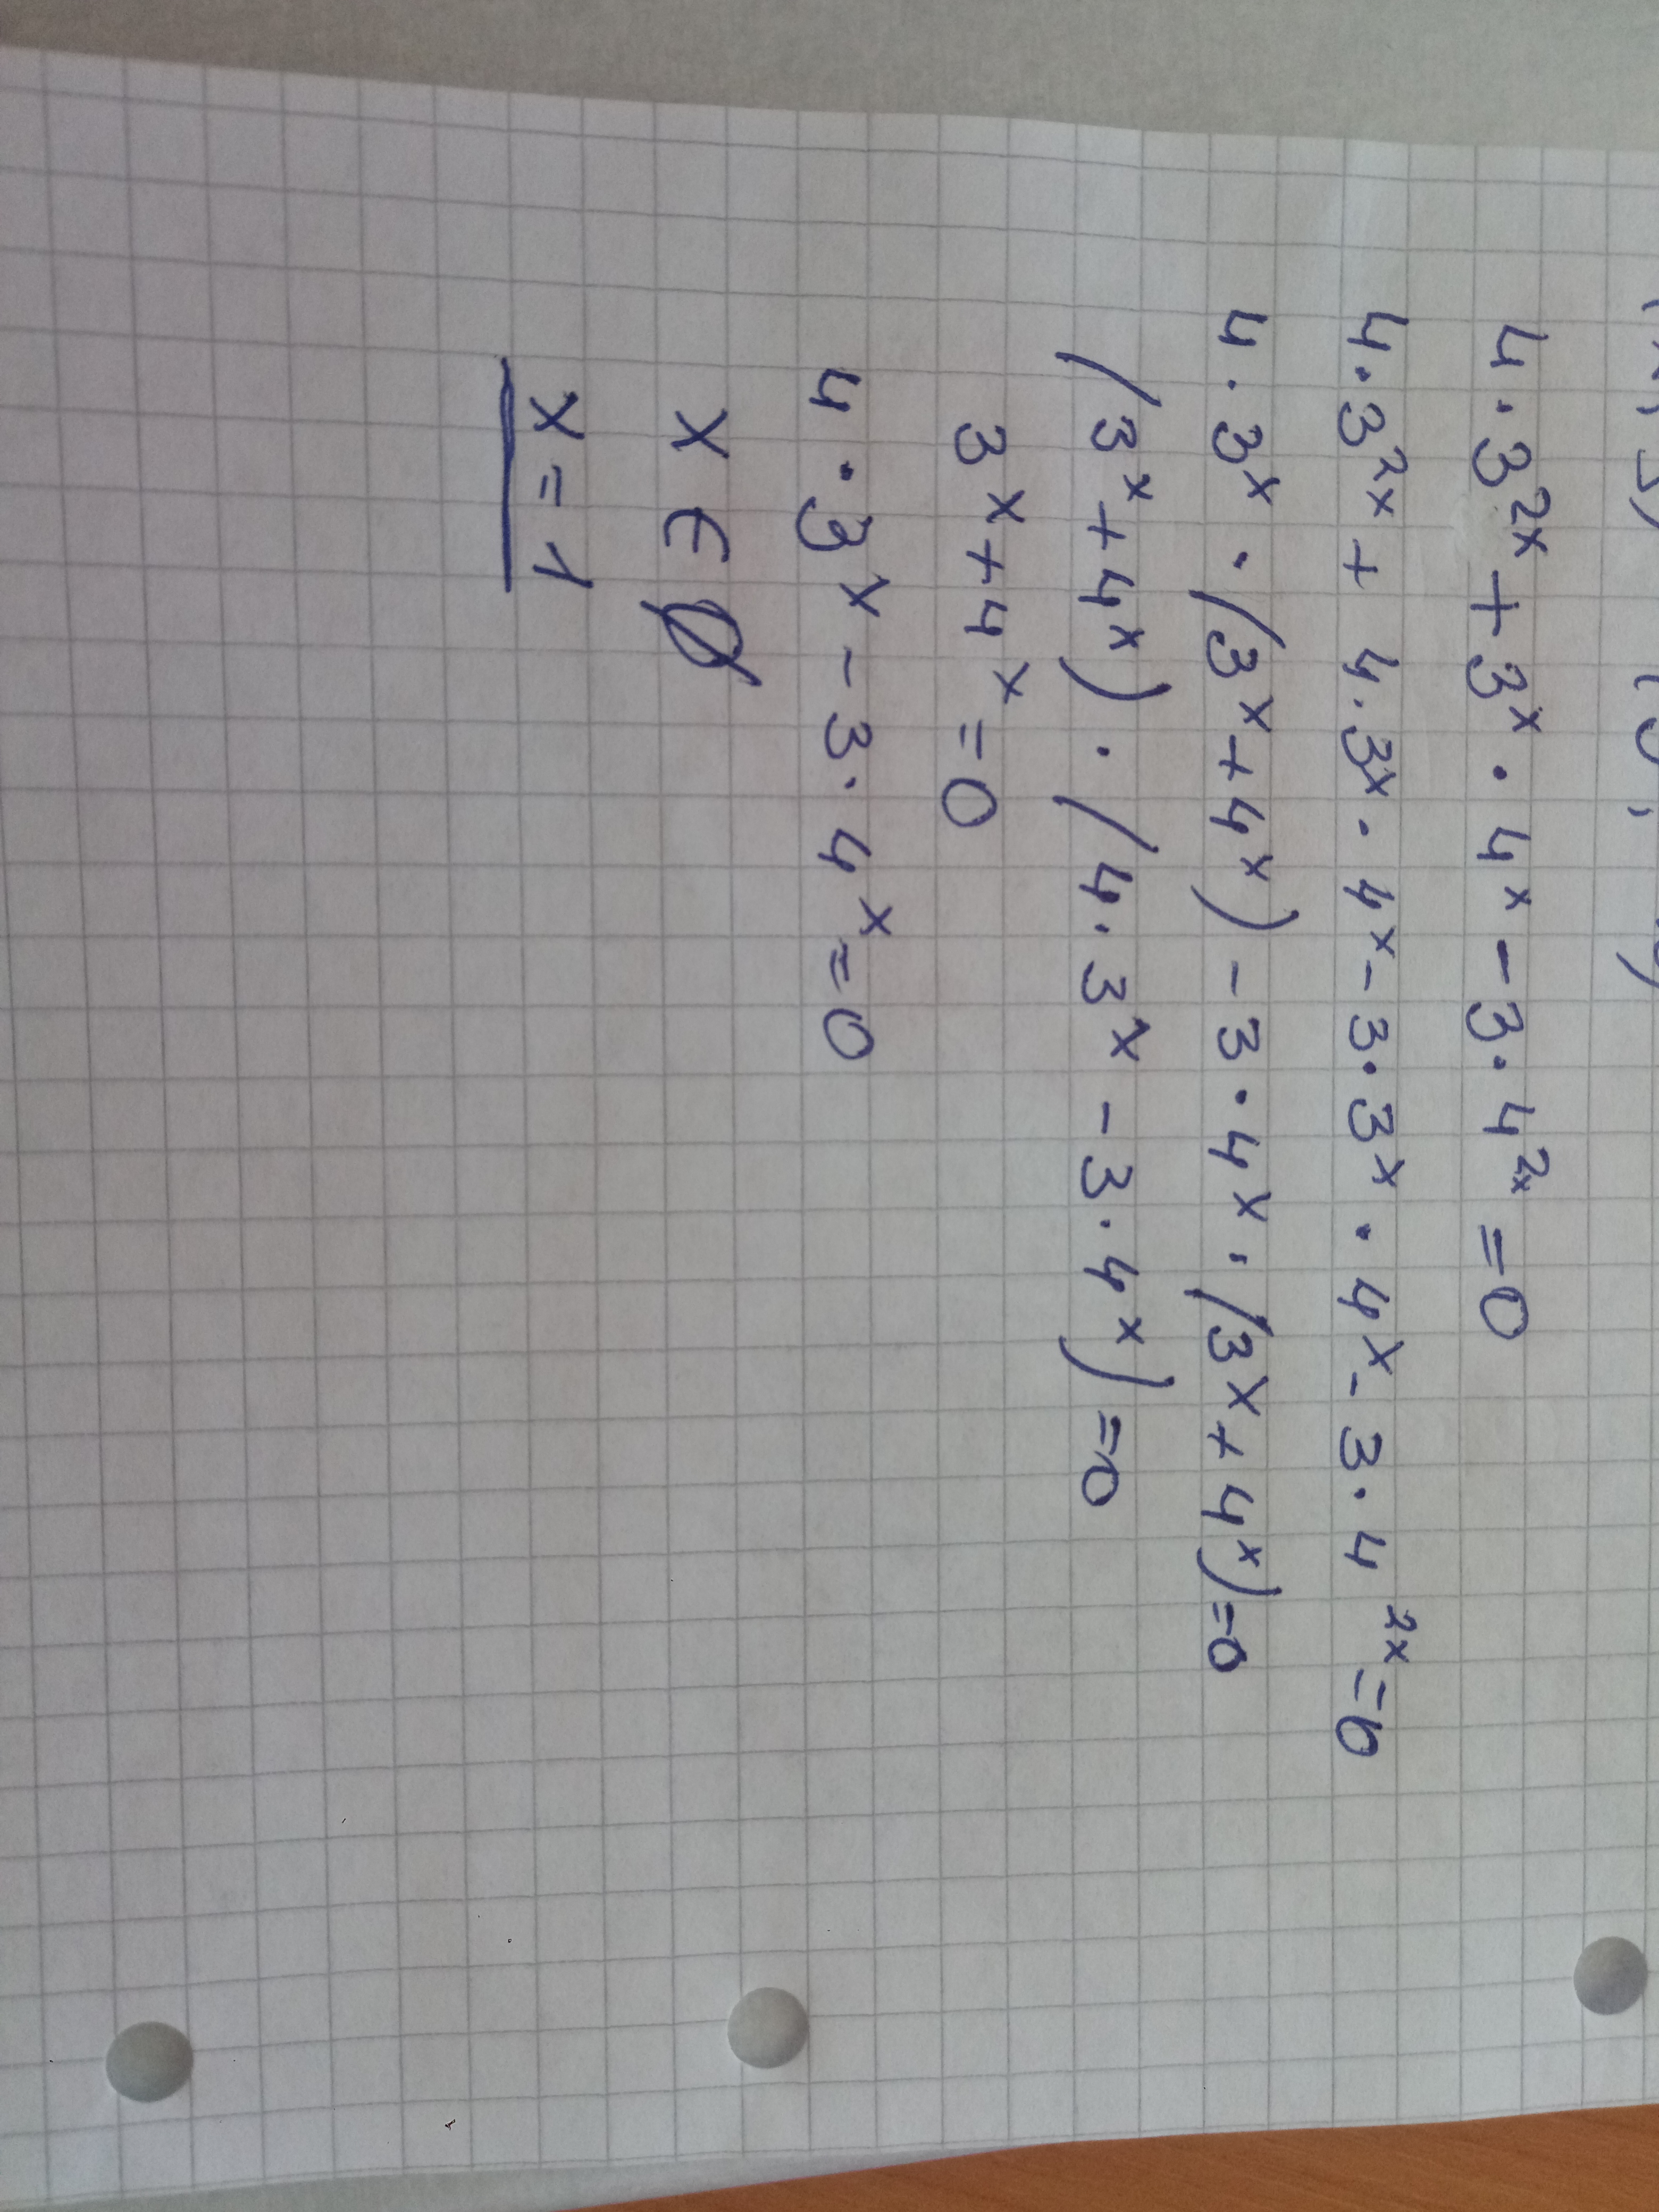 4·3²ˣ+3ˣ·4ˣ-3·4²ˣ=0
4·3²ˣ+4·3ˣ·4ˣ-3·3ˣ·4ˣ-3·4²ˣ=0
4·3ˣ·(3ˣ+4ˣ)-3·4ˣ·(3ˣ+4ˣ)=0
(3ˣ+4ˣ)·(4·3ˣ-3·4ˣ)=0
3ˣ+4ˣ=0
4·3ˣ-3·4ˣ=0
x∈∅
x=1